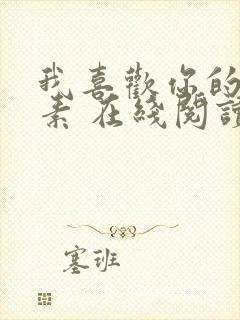 我喜歡你的
素 在綫閱讀
塞班